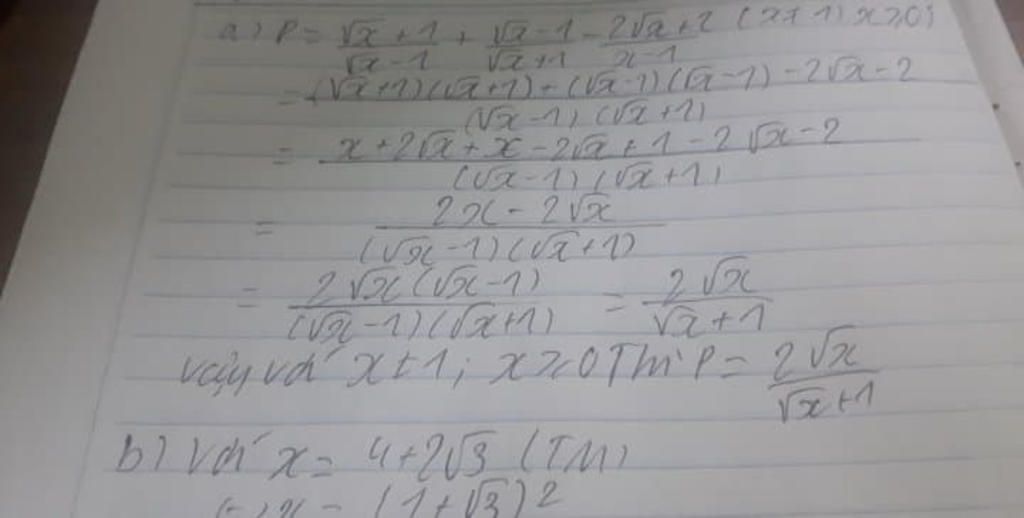 a) P = \frac{\sqrt{x}+1}{\sqrt{x}-1} + \frac{\sqrt{x}-1}{\sqrt{x}+1} - \frac{2\sqrt{x}+2}{x-1} (x ≠ 1) x ≥ 0)
= \frac{(\sqrt{x}+1)(\sqrt{x}+1)+(\sqrt{x}-1)(\sqrt{x}-1)-2\sqrt{x}-2}{(\sqrt{x}-1)(\sqrt{x}+1)}
= \frac{x+2\sqrt{x}+x-2\sqrt{x}+1-2\sqrt{x}-2}{(\sqrt{x}-1)(\sqrt{x}+1)}
= \frac{2x-2\sqrt{x}}{(\sqrt{x}-1)(\sqrt{x}+1)}
= \frac{2\sqrt{x}(\sqrt{x}-1)}{(\sqrt{x}-1)(\sqrt{x}+1)} = \frac{2\sqrt{x}}{\sqrt{x}+1}
Vậy với x ≠ 1; x ≥ 0 Thì P = \frac{2\sqrt{x}}{\sqrt{x}+1}
b) Với x = 4+2\sqrt{3} (TM)
x = (1+\sqrt{3})2